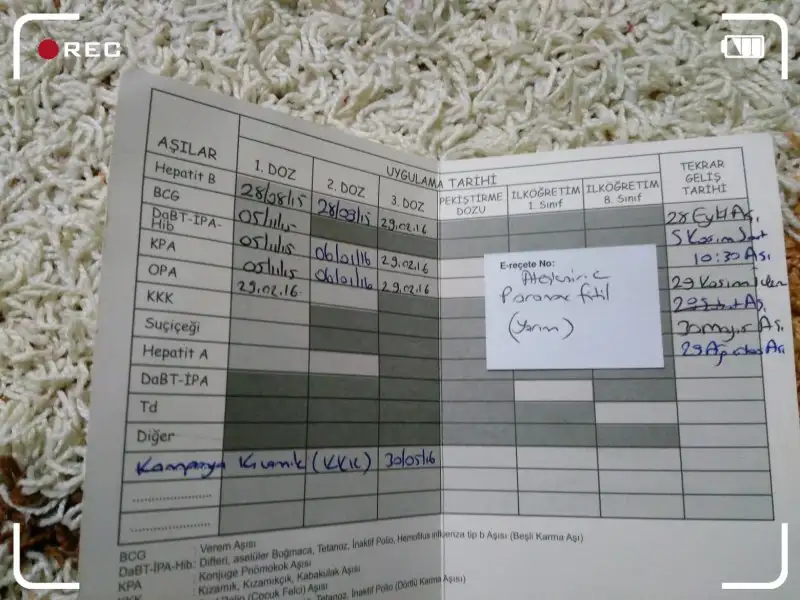 REC
UYGULAMA TARİHİ
AŞILAR 1. DOZ 2. DOZ 3. DOZ PEKİŞTİRME DOZU İLKÖĞRETİM 1. Sınıf İLKÖĞRETİM 8. Sınıf TEKRAR GELİŞ TARİHİ
Hepatit B 28/08/15 28/09/15 29.02.16
BCG
DaBT-İPA-Hib
KPA
OPA 29.02.16
KKK
Suçiçeği
Hepatit A
DaBT-İPA
Td
Diğer
Kampanya Kızamık (KKK) 30/05/16
05/11/15
05/11/15 06/01/16 29.02.16
05/11/15 06/01/16 29.02.16
28 Eylül Aşı
5 Kasım
10:30 Aşı
29 Kasım
30 Mayıs Aşı
Aşı
E-reçete No:
Ateşlenince
Paranox fitil
(Yarım)
BCG : Verem Aşısı
DaBT-İPA-Hib: Difteri, aselüler Boğmaca, Tetanoz, İnaktif Polio, Hemofilus influenza tip b Aşısı (Beşli Karma Aşı)
KPA : Konjuge Pnömokok Aşısı
KKK : Kızamık, Kızamıkçık, Kabakulak Aşısı
Polio (Çocuk Felci) Aşısı
Tetanoz, İnaktif Polio (Dörtlü Karma Aşısı)